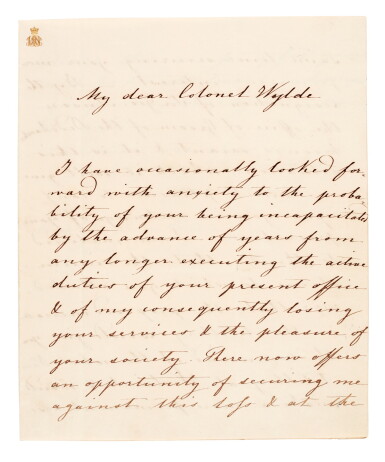 My dear Colonel Wylde
I have occasionally looked for-
ward with anxiety to the proba-
bility of your being incapacitated
by the advance of years from
any longer executing the active
duties of your present office
& of my consequently losing
your services & the pleasure of
your society. There now offers
an opportunity of securing me
against this loss & at the